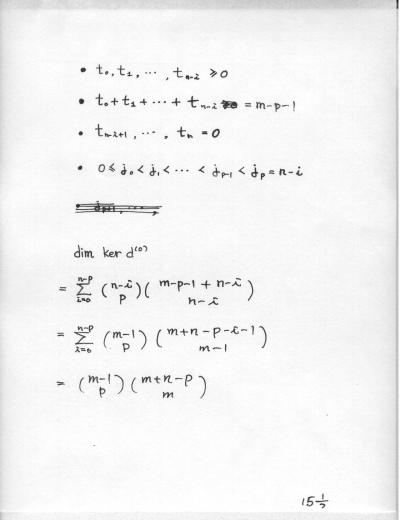 • t₀, t₁, ⋯, tₙ₋ᵢ ⩾ 0
• t₀ + t₁ + ⋯ + tₙ₋ᵢ = m-p-1
• tₙ₋ᵢ₊₁, ⋯, tₙ = 0
• 0 ⩽ j₀ < j₁ < ⋯ < j_{p-1} < j_p = n-i
dim ker d⁽⁰⁾
= \sum_{i=0}^{n-p} \binom{n-i}{p} \binom{m-p-1+n-i}{n-i}
= \sum_{i=0}^{n-p} \binom{m-1}{p} \binom{m+n-p-i-1}{m-1}
= \binom{m-1}{p} \binom{m+n-p}{m}
15 ½